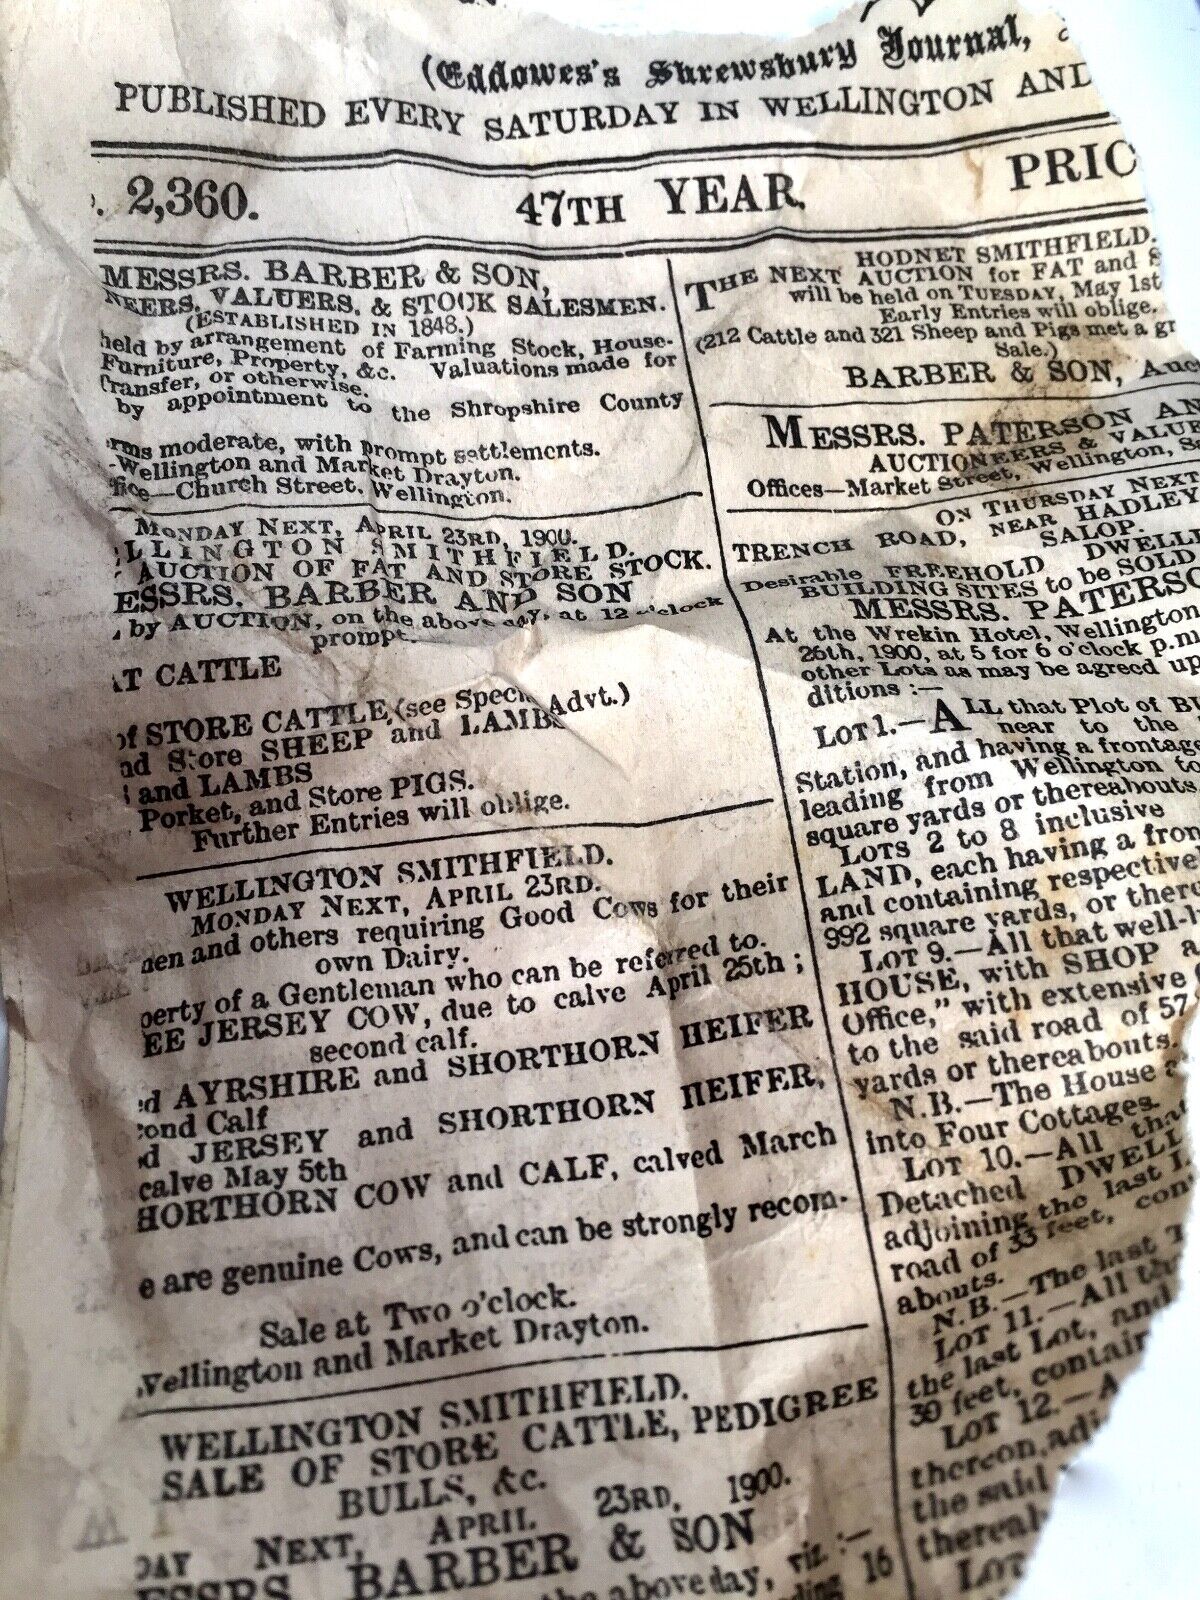 (Eddowes's Shrewsbury Journal,
PUBLISHED EVERY SATURDAY IN WELLINGTON AND
. 2,360.
47TH YEAR.
PRIC
MESSRS. BARBER & SON,
NEERS, VALUERS, & STOCK SALESMEN.
(ESTABLISHED IN 1848.)
held by arrangement of Farming Stock, House-
Furniture, Property, &c. Valuations made for
Transfer, or otherwise.
by appointment to the Shropshire County
rms moderate, with prompt settlements.
-Wellington and Market Drayton.
ffice—Church Street, Wellington.
MONDAY NEXT, APRIL 23RD, 1900.
LLINGTON SMITHFIELD.
AUCTION OF FAT AND STORE STOCK.
ESSRS. BARBER AND SON
, by AUCTION, on the above day, at 12 o'clock
prompt.
AT CATTLE
of STORE CATTLE, (see Special Advt.)
nd Store SHEEP and LAMBS
and LAMBS
Porket, and Store PIGS.
Further Entries will oblige.
WELLINGTON SMITHFIELD.
MONDAY NEXT, APRIL 23RD.
men and others requiring Good Cows for their
own Dairy.
perty of a Gentleman who can be referred to.
EE JERSEY COW, due to calve April 25th;
second calf.
d AYRSHIRE and SHORTHORN HEIFER
cond Calf
d JERSEY and SHORTHORN HEIFER,
calve May 5th
HORTHORN COW and CALF, calved March
e are genuine Cows, and can be strongly recom-
Sale at Two o'clock.
Wellington and Market Drayton.
WELLINGTON SMITHFIELD.
SALE OF STORE CATTLE, PEDIGREE
BULLS, &c.
DAY NEXT, APRIL 23RD, 1900.
ESSRS. BARBER & SON
the above day, viz:—
ding 16
HODNET SMITHFIELD.
THE NEXT AUCTION for FAT and S
will be held on TUESDAY, May 1st
Early Entries will oblige.
(212 Cattle and 321 Sheep and Pigs met a gr
Sale.)
BARBER & SON, Auc
MESSRS. PATERSON AN
AUCTIONEERS & VALUE
Offices—Market Street, Wellington, S
ON THURSDAY NEXT
TRENCH ROAD, NEAR HADLEY
SALOP.
Desirable FREEHOLD DWELLI
BUILDING SITES to be SOLD
MESSRS. PATERSO
At the Wrekin Hotel, Wellington
26th, 1900, at 5 for 6 o'clock p.m
other Lots as may be agreed up
ditions :—
LOT 1.—ALL that Plot of BU
near to the
Station, and having a frontage
leading from Wellington to
square yards or thereabouts
LOTS 2 to 8 inclusive
LAND, each having a fron
and containing respective
992 square yards, or there
LOT 9.—All that well-k
HOUSE, with SHOP a
Office," with extensive
to the said road of 57
yards or thereabouts.
N.B.—The House a
into Four Cottages.
LOT 10.—All that
Detached DWELL
adjoining the last L
road of 33 feet, con
abouts.
N.B.—The last
LOT 11.—All th
the last Lot, and
39 feet, contain
LOT 12.—A
thereon, adj
the said
thereab
LOT